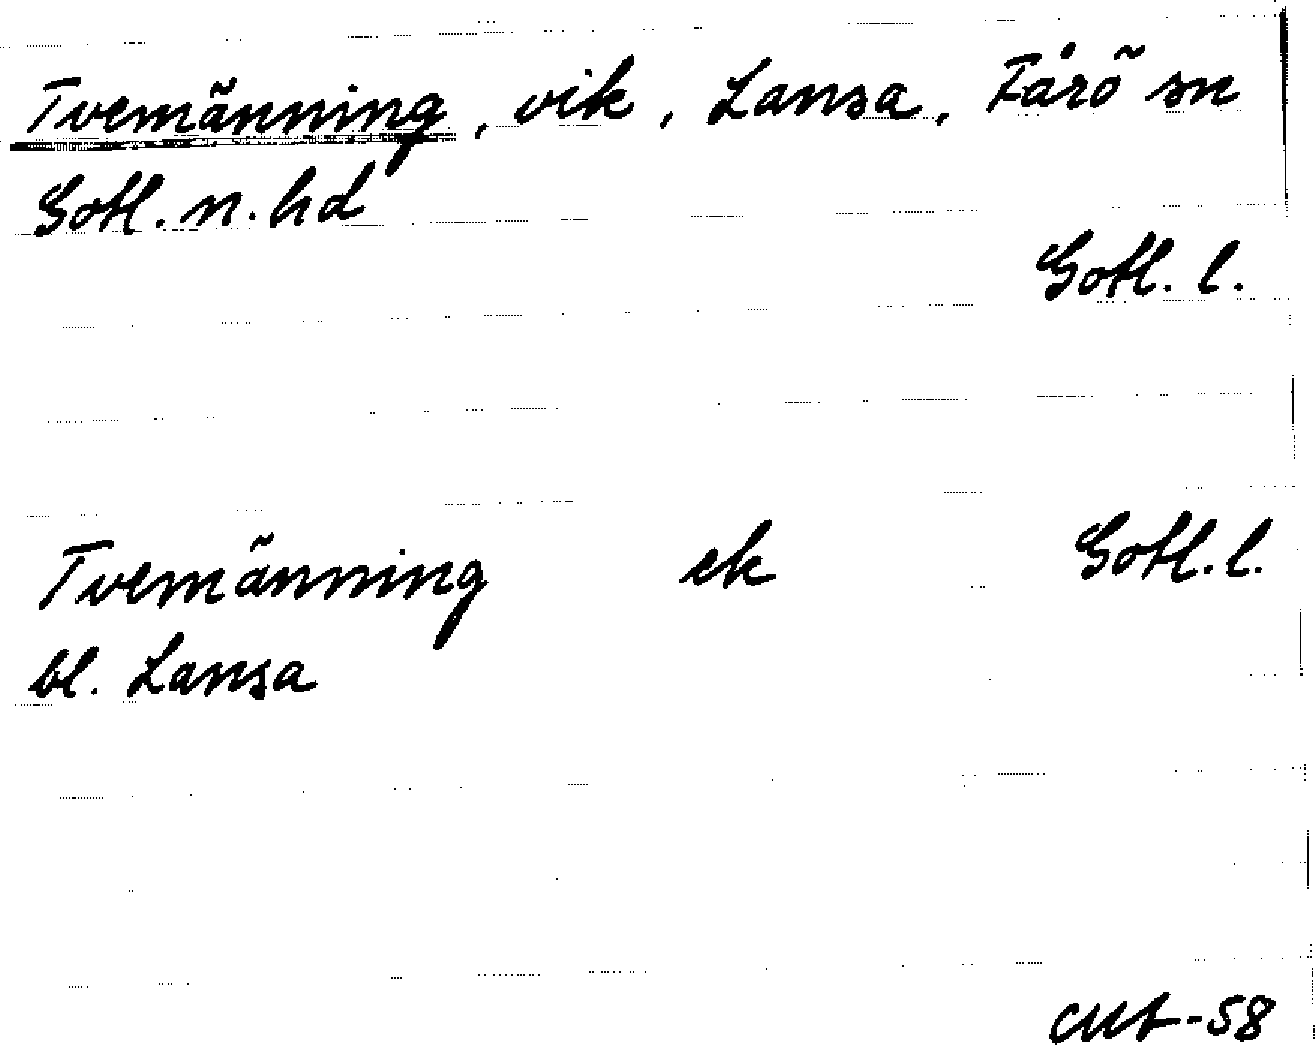 Tvemänning, vik, Lansa, Fårö sn
Gotl. n. hd
Gotl. l.
Tvemänning ek Gotl. l.
bl. Lansa
-58